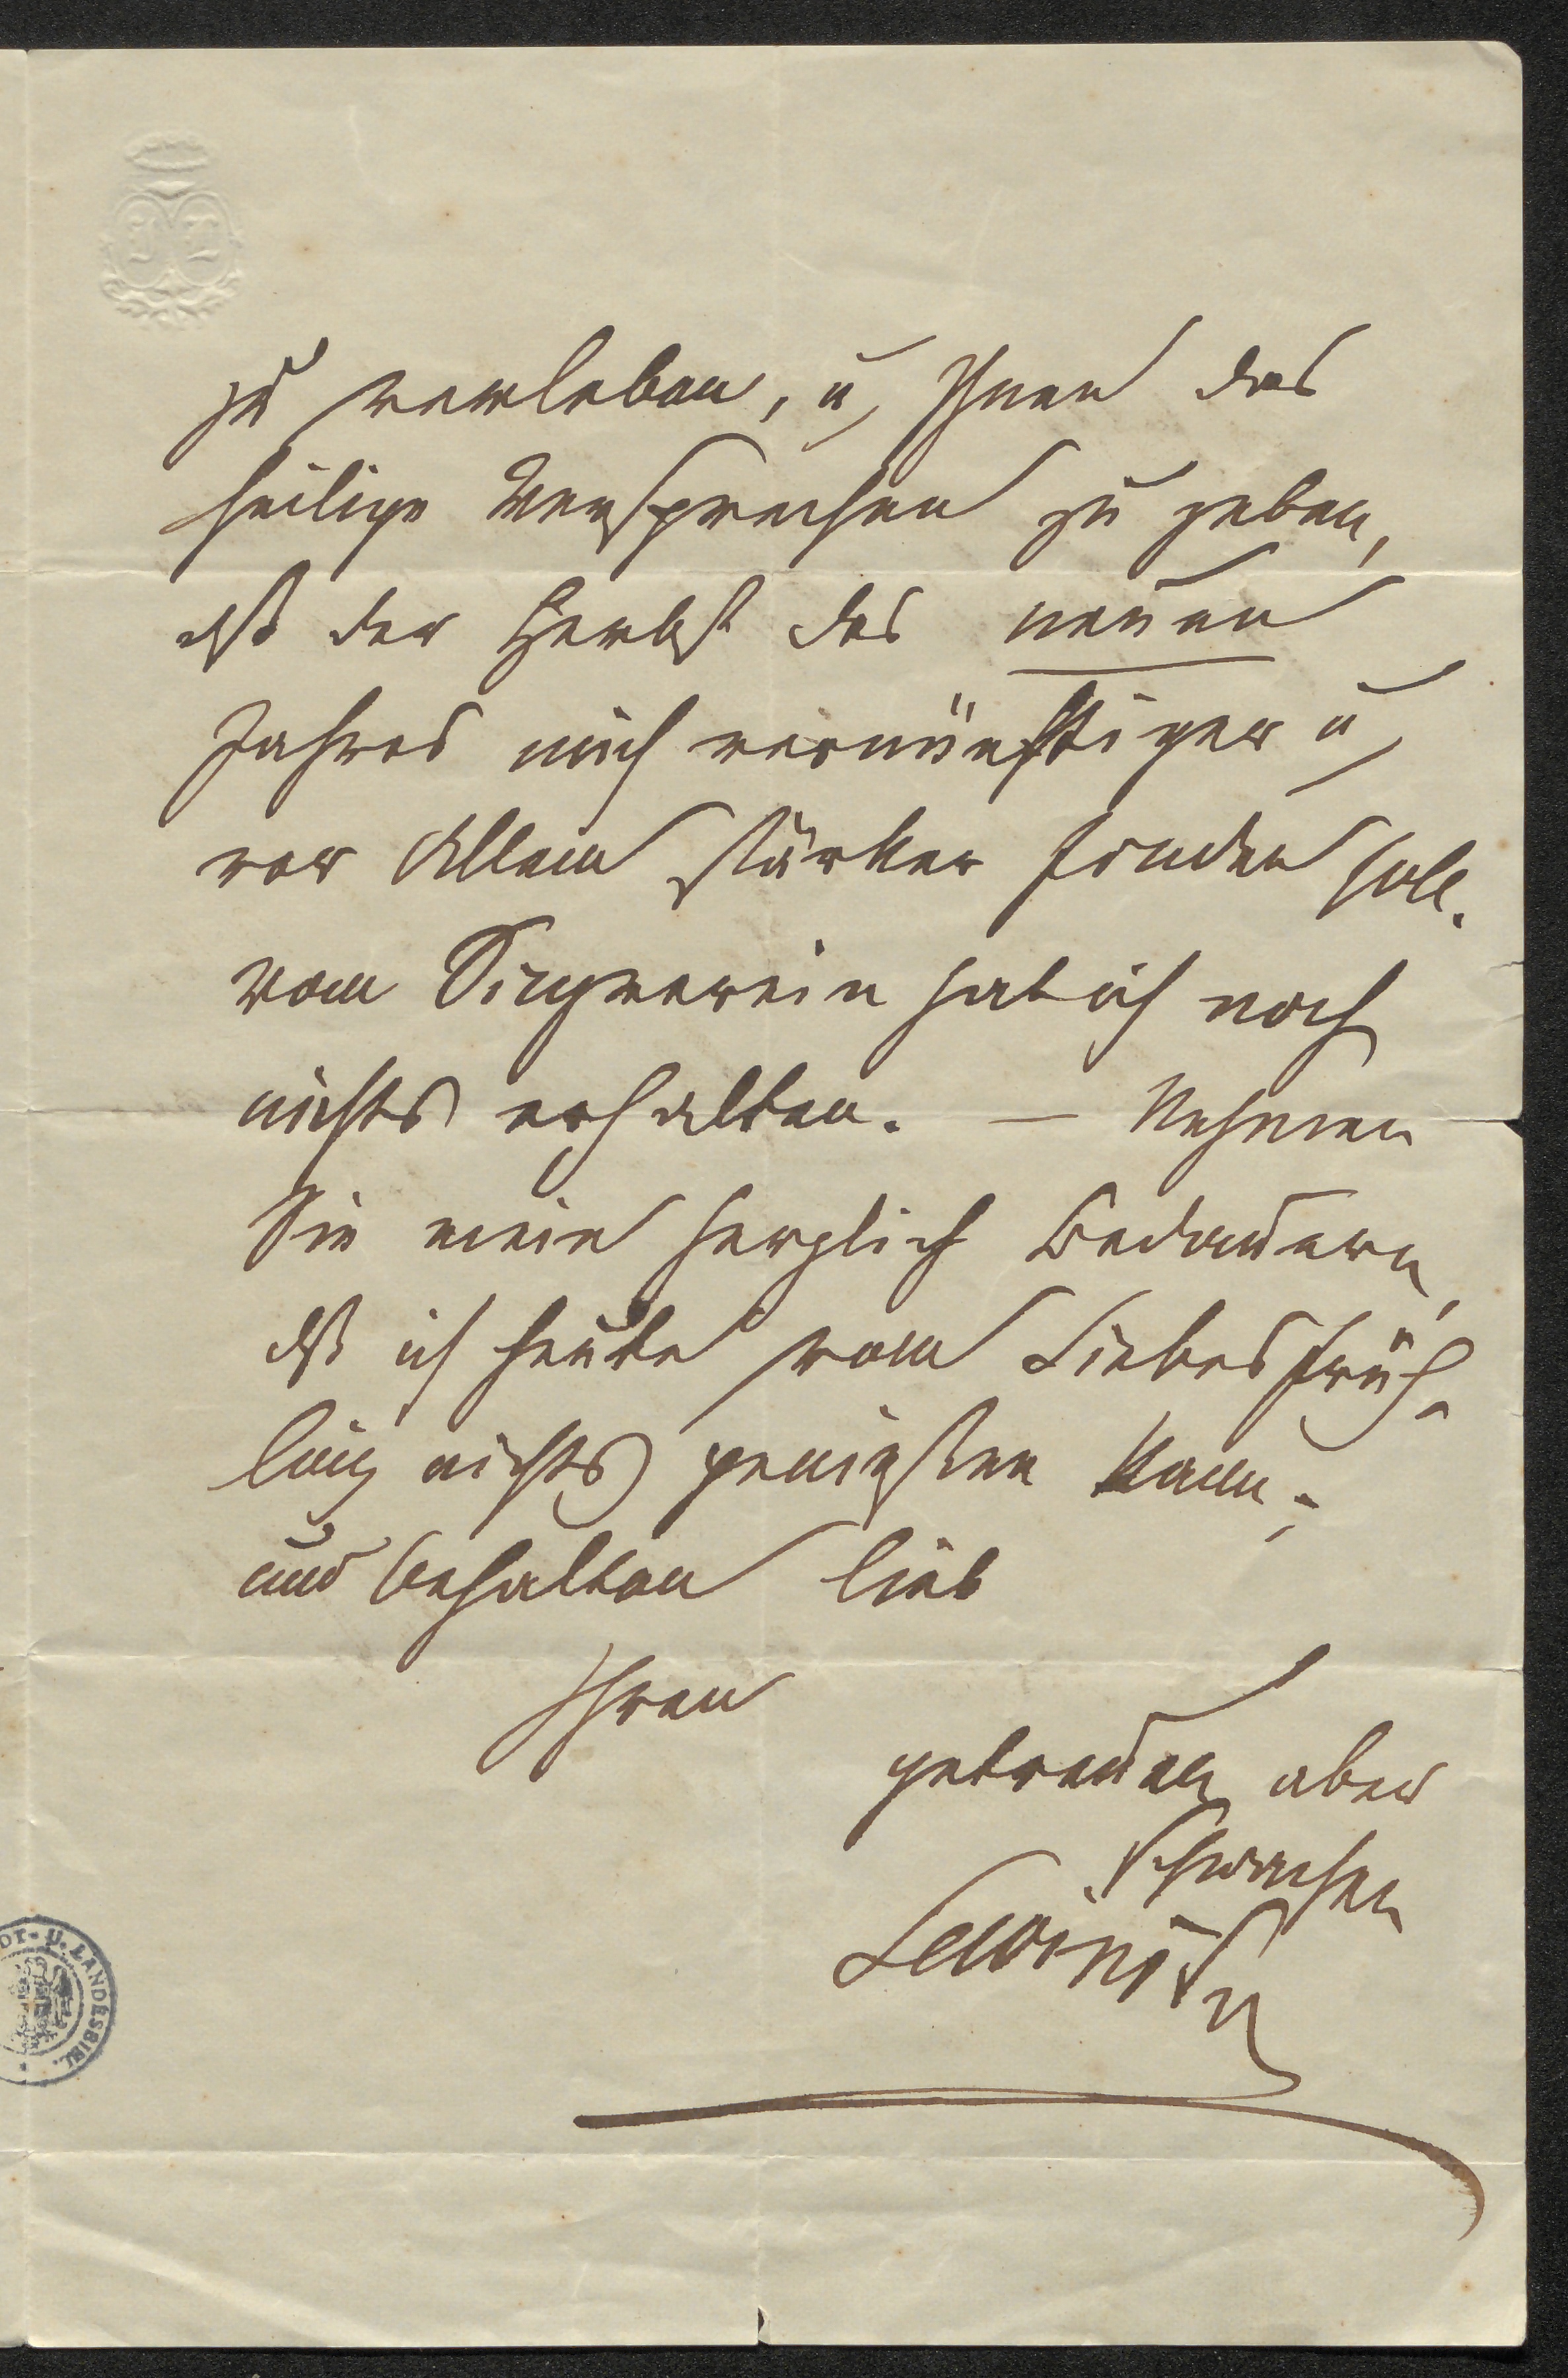 zu verleben, u Ihnen das
heilige Versprechen zu geben,
dß der Herbst des neuen
Jahres mich vernünftiger u
vor Allem stärker finden soll.
Vom Singverein hab ich noch
nichts erhalten. — Nehmen
Sie mein herzlich Bedauern,
dß ich heute vom Liebesfrüh-
ling nichts genießen kann;
und behalten lieb
Ihren
getreuen aber
schwachen
Lewinsky
DT- U. LANDESBIBL.